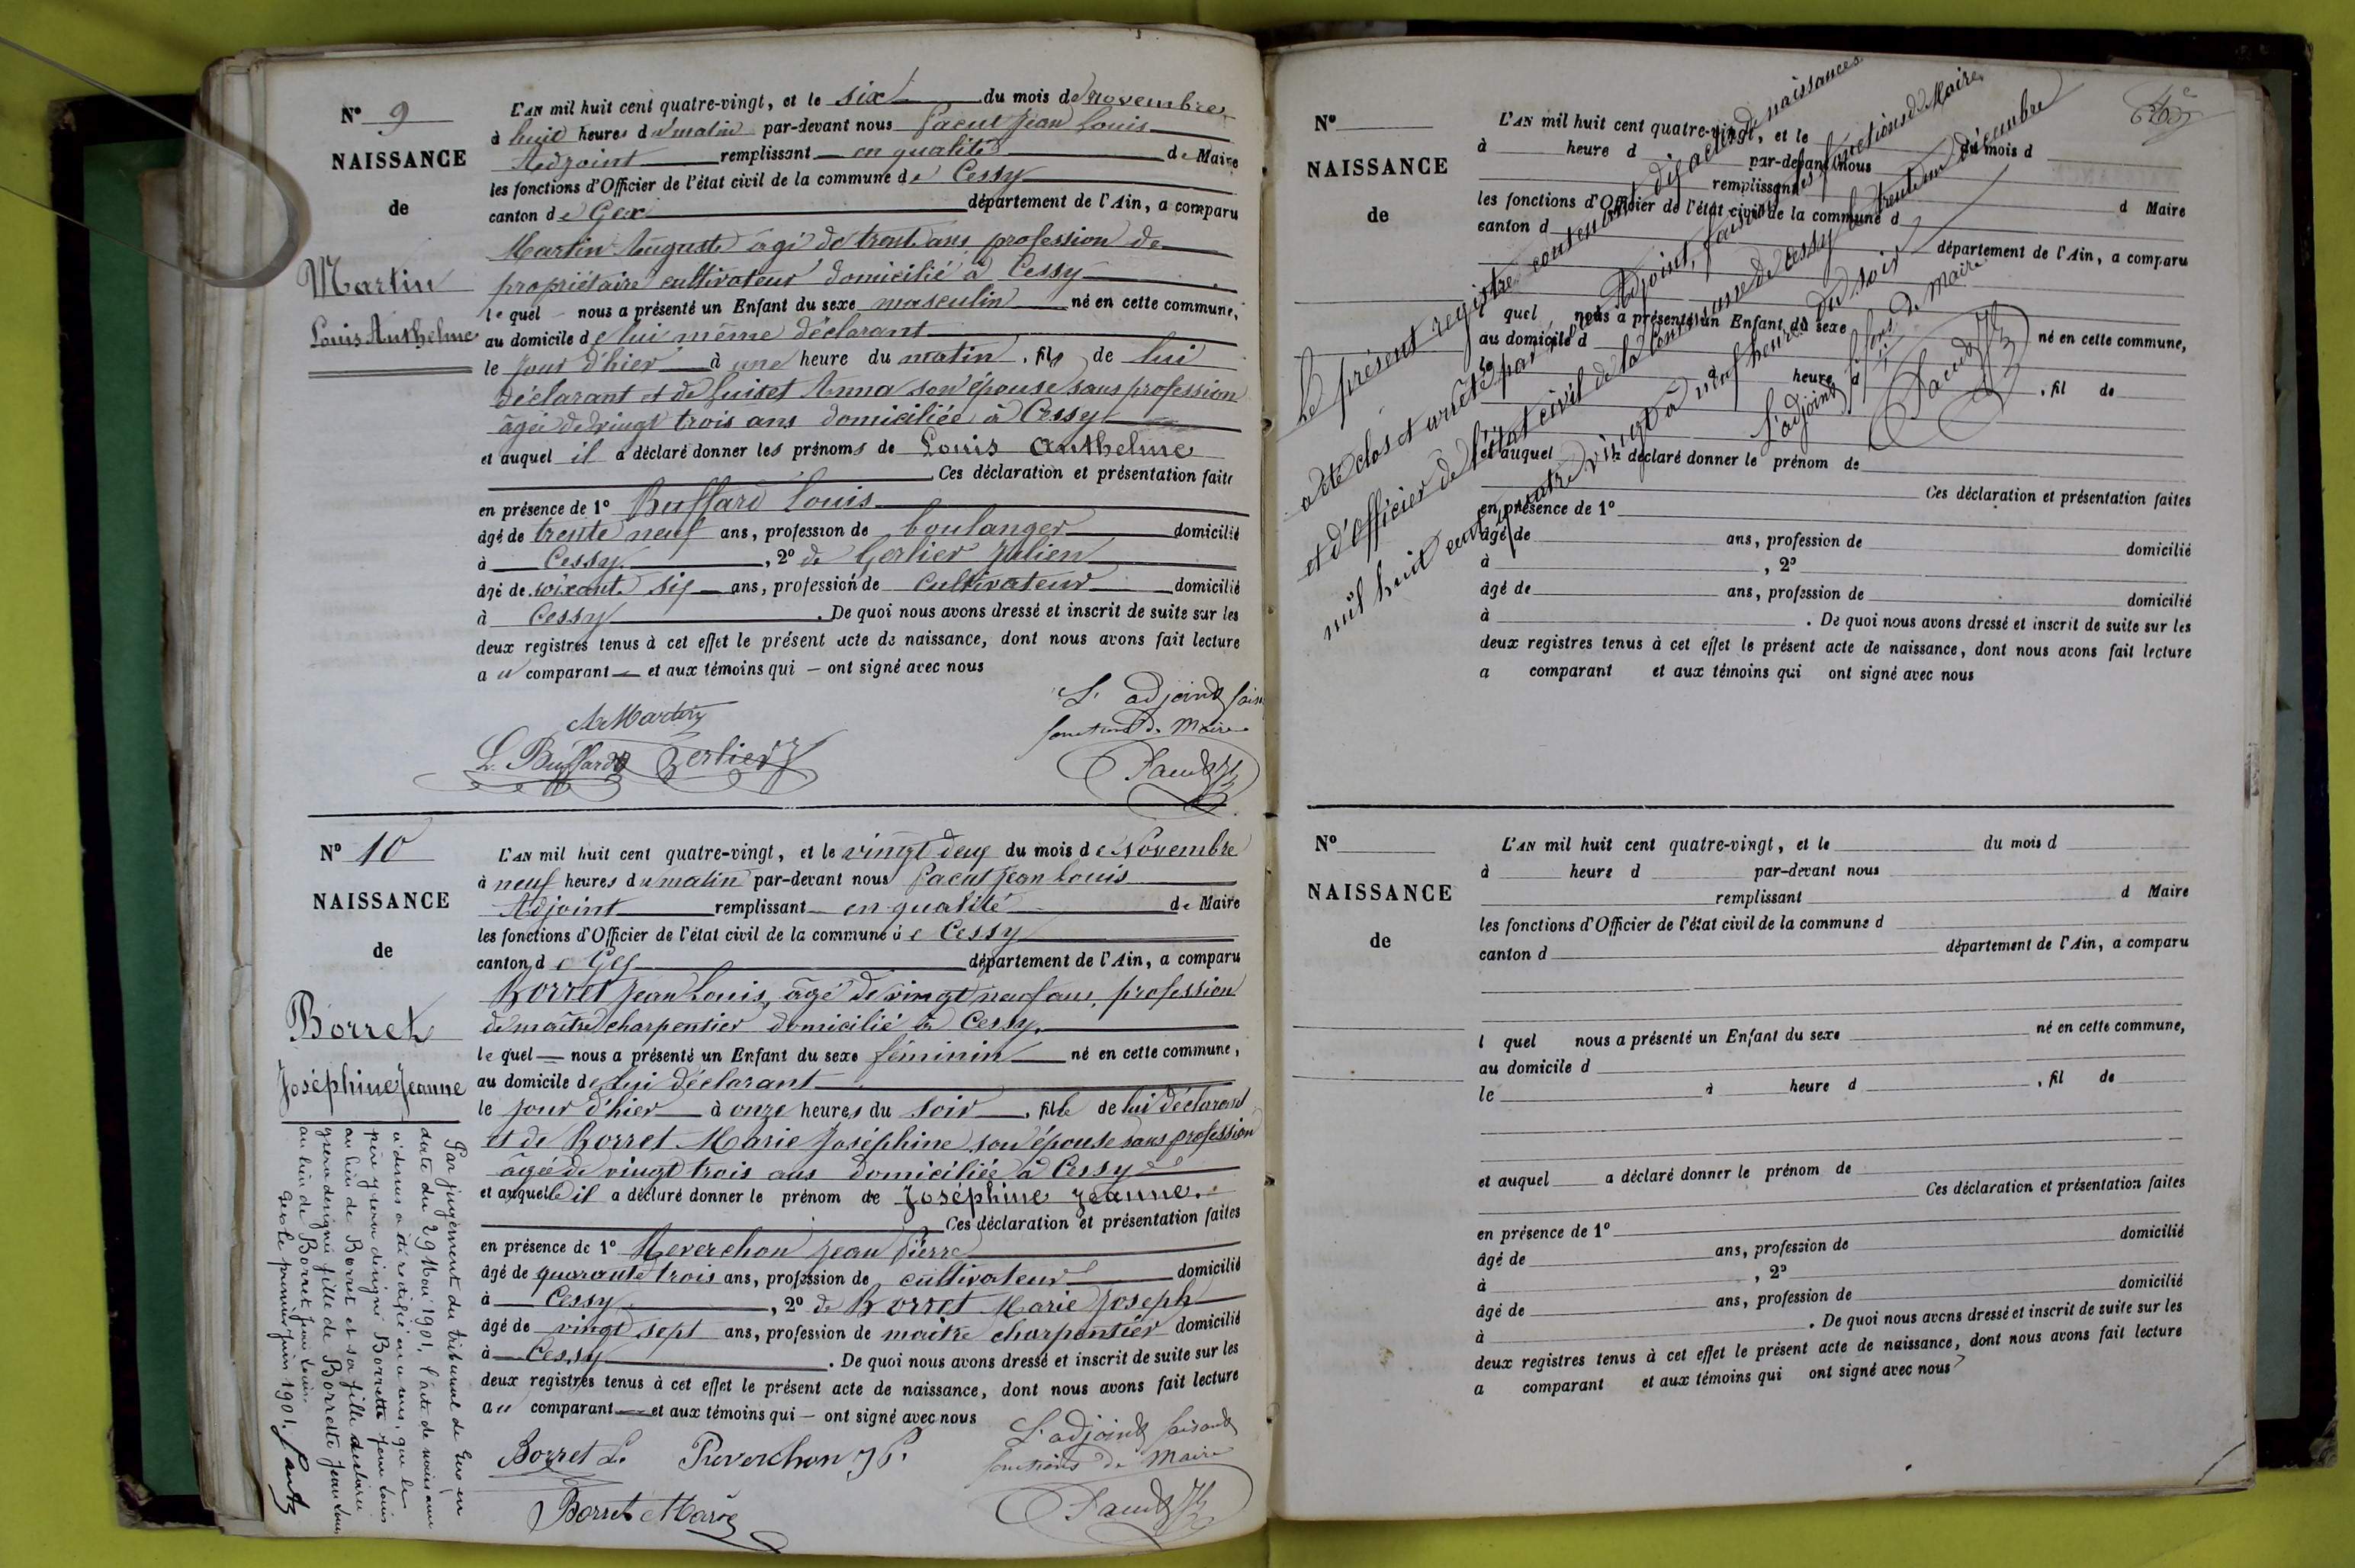 N° 9
NAISSANCE
de
Martin
Louis Anthelme
L'AN mil huit cent quatre-vingt, et le six du mois de novembre
à huit heures du matin par-devant nous Jean Louis
Adjoint remplissant en qualité de Maire
les fonctions d'Officier de l'état civil de la commune de Cessy
canton de Gex département de l'Ain, a comparu
Martin Auguste âgé de trente ans profession de
propriétaire cultivateur domicilié à Cessy
lequel nous a présenté un Enfant du sexe masculin né en cette commune,
au domicile de lui même déclarant
le jour d'hier à une heure du matin, fils de lui
déclarant et de Anna son épouse sans profession
âgée de vingt trois ans domiciliée à Cessy
et auquel il a déclaré donner les prénoms de Louis Anthelme
Ces déclaration et présentation faite
en présence de 1° Buffard Louis
âgé de trente neuf ans, profession de boulanger domicilié
à Cessy, 2° de Gerlier Julien
âgé de soixante six ans, profession de cultivateur domicilié
à Cessy. De quoi nous avons dressé et inscrit de suite sur les
deux registres tenus à cet effet le présent acte de naissance, dont nous avons fait lecture
au comparant et aux témoins qui — ont signé avec nous
L'adjoint
A. Martin
fonctions de Maire
L. Buffard Gerlier J
N° 10
NAISSANCE
de
Borret
Joséphine Jeanne
L'AN mil huit cent quatre-vingt, et le vingt deux du mois de Novembre
à neuf heures du matin par-devant nous Jean Louis
Adjoint remplissant en qualité de Maire
les fonctions d'Officier de l'état civil de la commune de Cessy
canton de Gex département de l'Ain, a comparu
Borret Jean Louis, âgé de vingt neuf ans, profession
de maître charpentier domicilié à Cessy,
lequel — nous a présenté un Enfant du sexe féminin né en cette commune,
au domicile de lui déclarant
le jour d'hier à onze heures du soir, fille de lui déclarant
et de Borret Marie Joséphine son épouse sans profession
âgée de vingt trois ans domiciliée à Cessy
et auquelle il a déclaré donner le prénom de Joséphine Jeanne.
Ces déclaration et présentation faites
en présence de 1° Jean Pierre
âgé de quarante trois ans, profession de cultivateur domicilié
à Cessy, 2° de Borret Marie Joseph
âgé de vingt sept ans, profession de maître charpentier domicilié
à Cessy. De quoi nous avons dressé et inscrit de suite sur les
deux registres tenus à cet effet le présent acte de naissance, dont nous avons fait lecture
au comparant et aux témoins qui — ont signé avec nous
L'adjoint faisant
fonctions de Maire
Borret L. Preverchon J P.
Borret Marie
Par jugement du tribunal de Gex en
date du 29 Mai 1901, l'acte de naissance
ci dessus a été rectifié en ce sens que le
père y sera désigné Borrette Jean Louis
au lieu de Borret et sa fille déclarée
y sera désignée fille de Borrette Jean Louis
au lieu de Borret Jean Louis.
Gex le premier juin 1901.
N°
NAISSANCE
de
L'AN mil huit cent quatre-vingt, et le du mois d
à heure d par-devant nous
remplissant d Maire
les fonctions d'Officier de l'état civil de la commune d
canton d département de l'Ain, a comparu
l quel nous a présenté un Enfant du sexe né en cette commune,
au domicile d
le à heure d , fil de
et auquel a déclaré donner le prénom de
Ces déclaration et présentation faites
en présence de 1°
âgé de ans, profession de domicilié
à , 2°
âgé de ans, profession de domicilié
à . De quoi nous avons dressé et inscrit de suite sur les
deux registres tenus à cet effet le présent acte de naissance, dont nous avons fait lecture
a comparant et aux témoins qui ont signé avec nous
Le présent registre contenant dix actes de naissances
a été clos et arrêté par nous Adjoint, faisant les fonctions de Maire
et d'Officier de l'état civil de la commune de Cessy le trente un décembre
mil huit cent quatre vingt à neuf heures du soir
L'adjoint
fons de Maire
N°
NAISSANCE
de
L'AN mil huit cent quatre-vingt, et le du mois d
à heure d par-devant nous
remplissant d Maire
les fonctions d'Officier de l'état civil de la commune d
canton d département de l'Ain, a comparu
l quel nous a présenté un Enfant du sexe né en cette commune,
au domicile d
le à heure d , fil de
et auquel a déclaré donner le prénom de
Ces déclaration et présentation faites
en présence de 1°
âgé de ans, profession de domicilié
à , 2°
âgé de ans, profession de domicilié
à . De quoi nous avons dressé et inscrit de suite sur les
deux registres tenus à cet effet le présent acte de naissance, dont nous avons fait lecture
a comparant et aux témoins qui ont signé avec nous